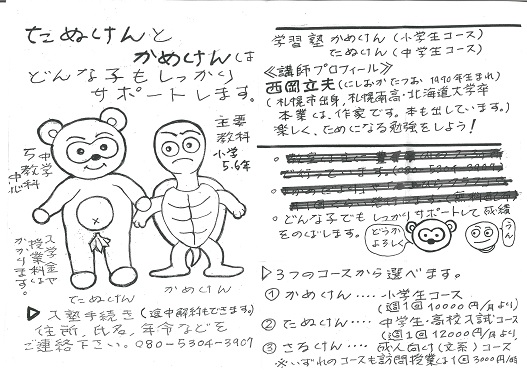 たぬけんと
かめけんは
どんな子もしっかり
サポートします。
中学
5教科
中心
主要
教科
小学
5.6年
入学金や
授業料は
かかります。
たぬけん
かめけん
▷入塾手続き(途中解約もできます。)
住所、氏名、年令などを
ご連絡下さい。080-5304-3907
学習塾 かめけん(小学生コース)
たぬけん(中学生コース)
≪講師プロフィール≫
西岡立夫(にしおかたつお 1970年生まれ)
(札幌市出身,札幌南高・北海道大学卒
本業は、作家です。本も出しています。)
楽しく、ためになる勉強をしよう!
。どんな子でもしっかりサポートして成績
をのばします。
どうか
よろしく
うん
▷3つのコースから選べます。
① かめけん‥‥小学生コース
(週1回10000円/月より)
② たぬけん‥‥中学生・高校入試コース
(週1回12000円/月より)
③ さるけん‥‥成人向け(文系)コース
※いずれのコースも訪問授業は1回3000円/時